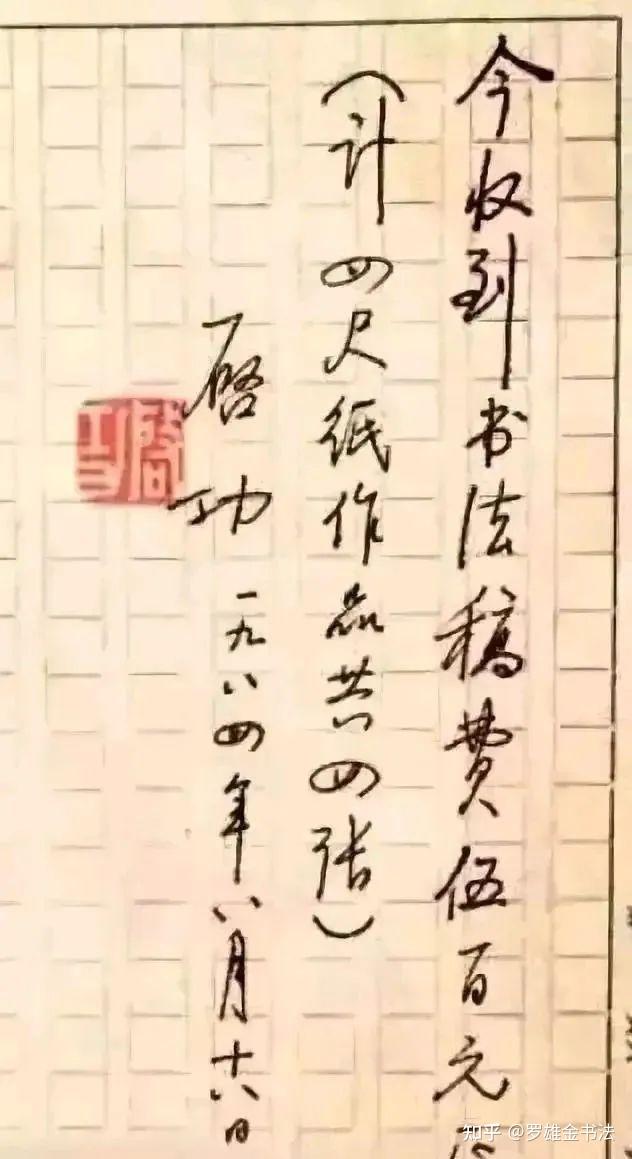 今收到书法稿费伍百元
(计四尺纸作品共四张)
启功 一九八四年八月十六日
启功
知乎 @罗雄金书法